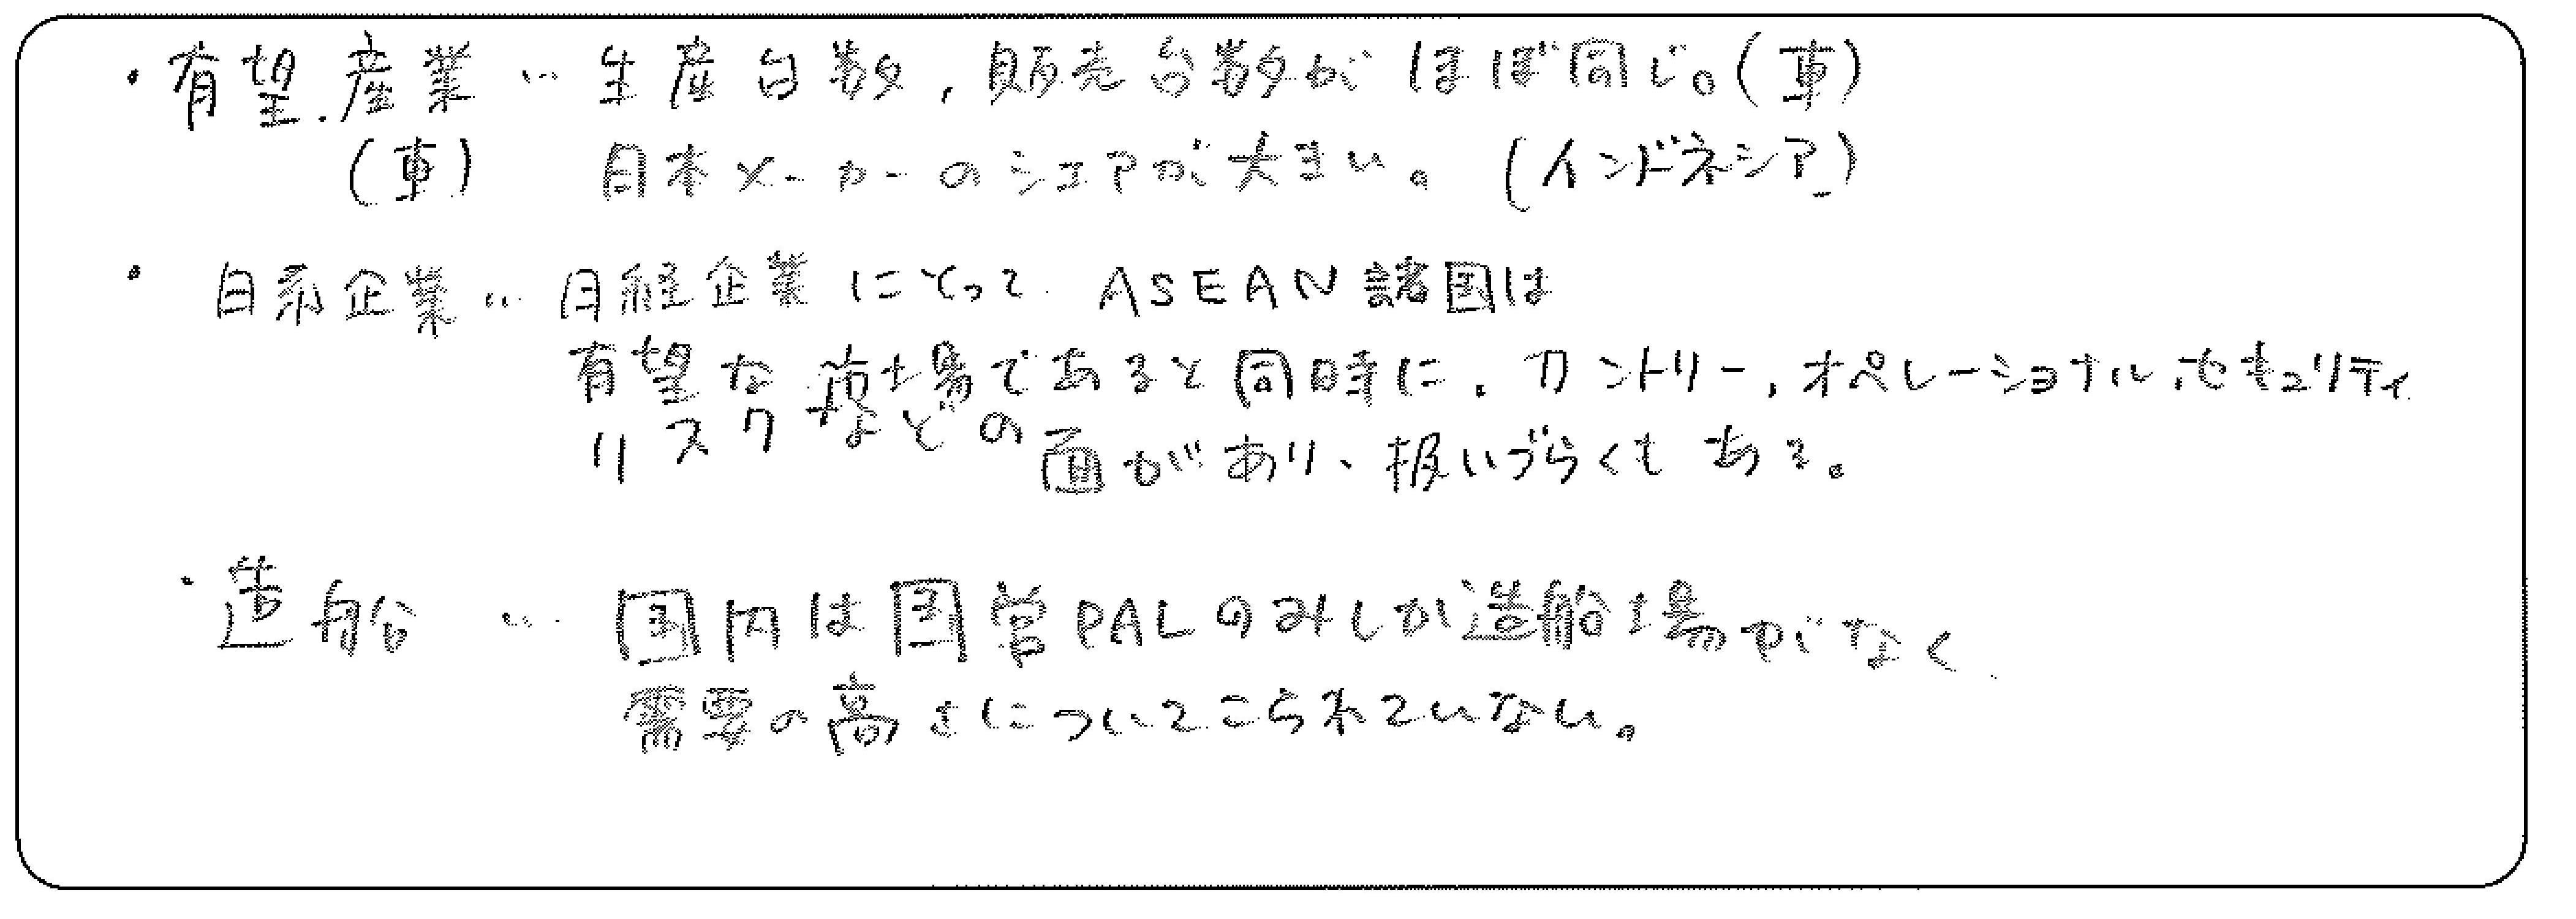 ・有望産業…生産台数,販売台数がほぼ同じ。(車)
(車) 日本メーカーのシェアが大きい。(インドネシア)
・日系企業…日経企業にとってASEAN諸国は
有望な市場であると同時に、カントリー,オペレーショナル,セキュリティ
リスクなどの面があり、扱いづらくもある。
・造船…国内は国営PALのみしか造船場がなく
需要の高さについてこられていない。